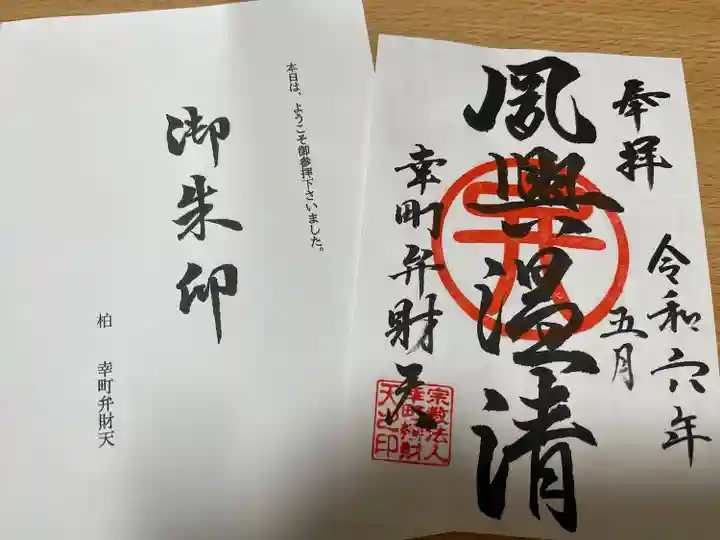 本日は、ようこそ御参拝下さいました。
御朱印
柏 幸町弁財天
奉拝
令和六年
五月
夙興温清
幸町弁財天
宗教法人
幸町弁財
天之印